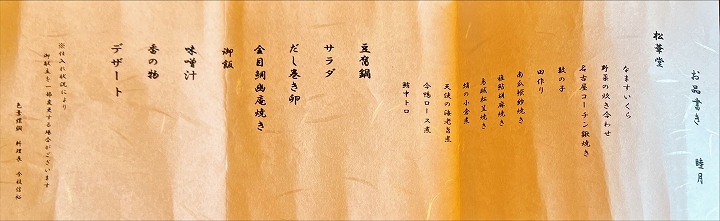 お品書き 睦月
松華堂
なますいくら
野菜の炊き合わせ
名古屋コーチン鍬焼き
数の子
田作り
南瓜模紗焼き
稚鮎胡麻焼き
烏賊松笠焼き
蛸の小倉煮
天使の海老旨煮
合鴨ロース煮
鮪中トロ
豆腐鍋
サラダ
だし巻き卵
金目鯛幽庵焼き
御飯
味噌汁
香の物
デザート
※仕入れ状況により
御献立を一部変更する場合がございます
料理長 今枝信裕